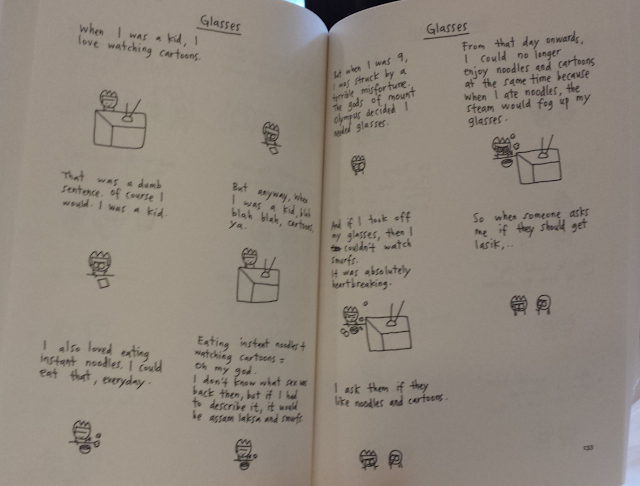 Glasses
When I was a kid, I
love watching cartoons.
That was a dumb
sentence. Of course I
would. I was a kid.
But anyway, when
I was a kid, blah
blah blah, cartoons,
ya.
I also loved eating
instant noodles. I could
eat that, everyday.
Eating instant noodles +
watching cartoons =
oh my god.
I don't know what sex was
back then, but if I had
to describe it, it would
be assam laksa and smurfs.
Glasses
But when I was 9,
I was struck by a
terrible misfortune.
The gods of mount
Olympus decided I
needed glasses.
From that day onwards,
I could no longer
enjoy noodles and cartoons
at the same time because
when I ate noodles, the
steam would fog up my
glasses.
And if I took off
my glasses, then I
couldn't watch
smurfs.
It was absolutely
heartbreaking.
So when someone asks
me if they should get
lasik,..
I ask them if they
like noodles and cartoons.